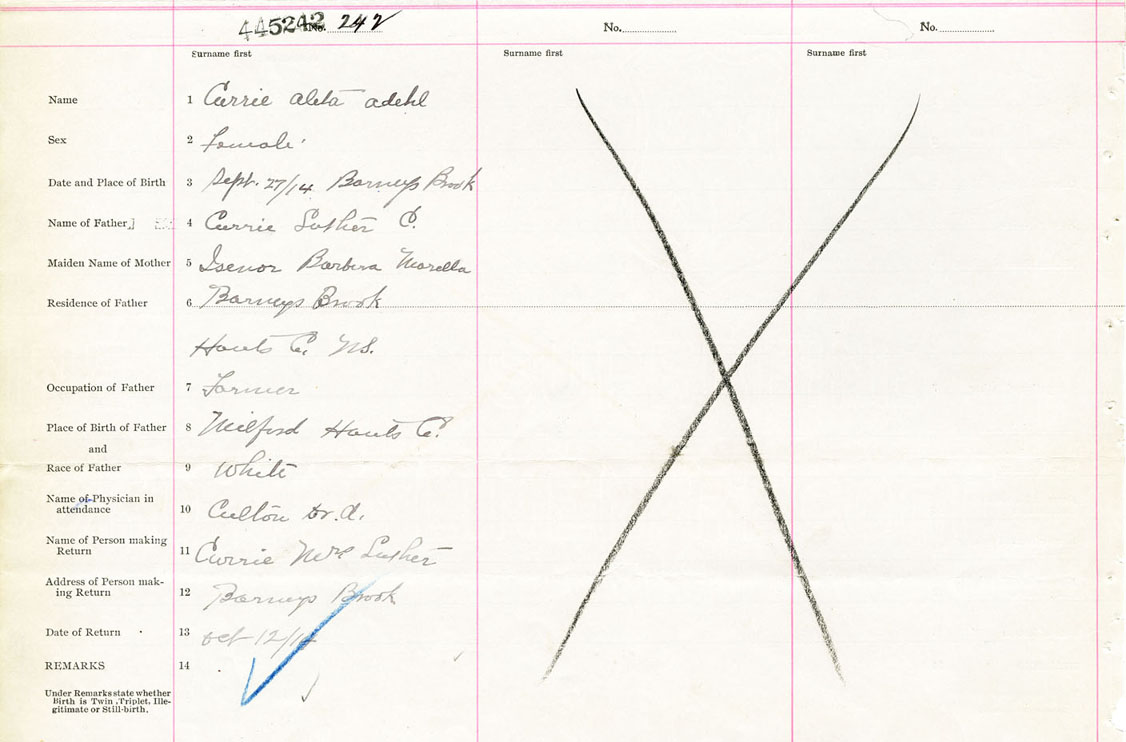 445242 No. 242 No. No.
Surname first Surname first Surname first
Name 1 Currie Aleta Adehl
Sex 2 Female
Date and Place of Birth 3 Sept. 27/14 Barneys Brook
Name of Father 4 Currie Luther C.
Maiden Name of Mother 5 Isenor Barbera Morella
Residence of Father 6 Barneys Brook
Hants Co. N.S.
Occupation of Father 7 Farmer
Place of Birth of Father 8 Milford Hants Co.
and
Race of Father 9 White
Name of Physician in
attendance 10 Culton Dr. A.
Name of Person making
Return 11 Currie Mrs Luther
Address of Person mak-
ing Return 12 Barneys Brook
Date of Return 13 Oct 12/14
REMARKS 14
Under Remarks state whether
Birth is Twin, Triplet, Ille-
gitimate or Still-birth.